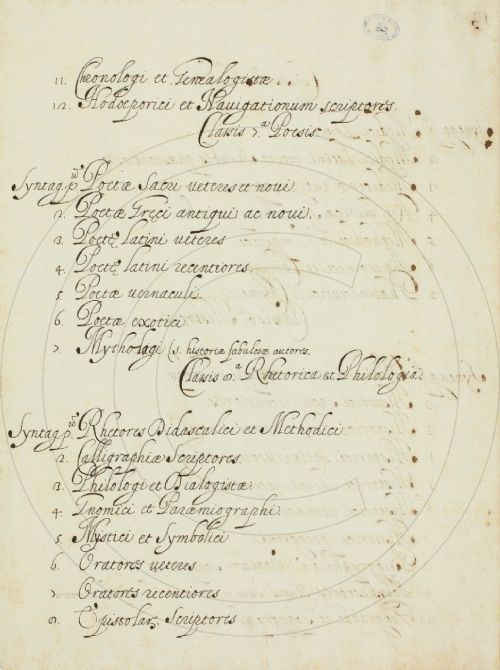 11. Chronologi et Genealogistæ.
12. Hodoeporici et Nauigationum scriptores.
Classis 7.ª Poesis.
Syntag. p.ᵘ Poetæ Sacri veteres et noui
2. Poetæ Greci antiqui ac noui.
3. Poetę latini veteres
4. Poetę latini recentiores.
5. Poetæ vernaculi
6. Poetæ exotici
7. Mythologi s. historiæ fabulosæ autores.
Classis 8.ª Rhetorica et Philologia.
Syntag. p.ᵘ Rhetores Didascalici et Methodici
2. Calligraphiæ Scriptores.
3. Philologi et Dialogistæ
4. Gnomici et Paræmiographi
5. Mystici et Symbolici
6. Oratores veteres
7. Oratores recentiores
8. Epistolarʒ Scriptores